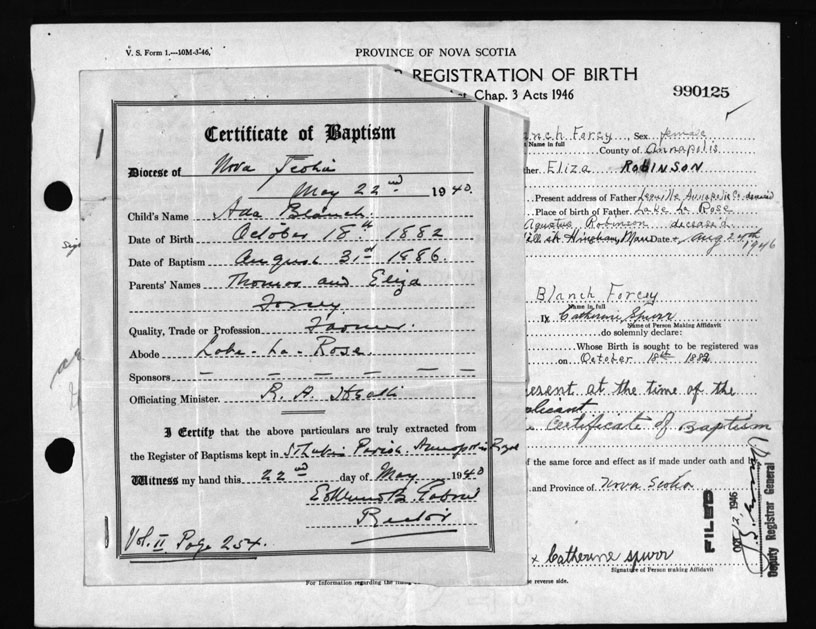 V. S. Form 1.—10M-3-46.
PROVINCE OF NOVA SCOTIA
REGISTRATION OF BIRTH
Chap. 3 Acts 1946
990125
Certificate of Baptism
Diocese of Nova Scotia
May 22nd 1940.
Child's Name Ada Blanch.
Date of Birth October 18th 1882
Date of Baptism August 31st 1886.
Parents' Names Thomas and Eliza
Forsey
Quality, Trade or Profession Farmer.
Abode Lake-La-Rose.
Sponsors — — — — —
Officiating Minister. R. A.
I Certify that the above particulars are truly extracted from
the Register of Baptisms kept in St Lukes Parish. Annapolis Royal
Witness my hand this 22nd day of May 1940
Rector
Vol. II Page 254.
anch Forcy, Sex female
Name in full
County of Annapolis
ther Eliza ROBINSON
Present address of Father Lequille Annapolis Co. deceased
Place of birth of Father Lake La Rose
Robinson deceased
Hingham, Mass Date Aug 24th
1946
Blanch Forcey
Name in full
I, Catherine Spurr
Name of Person Making Affidavit
do solemnly declare:
Whose Birth is sought to be registered was
on October 18th 1882
resent at the time of the
plicant
Certificate of Baptism
f the same force and effect as if made under oath and
and Province of Nova Scotia
FILED
1946
Deputy Registrar General
x Catherine Spurr
Signature of Person making Affidavit
For Information regarding the
e reverse side.